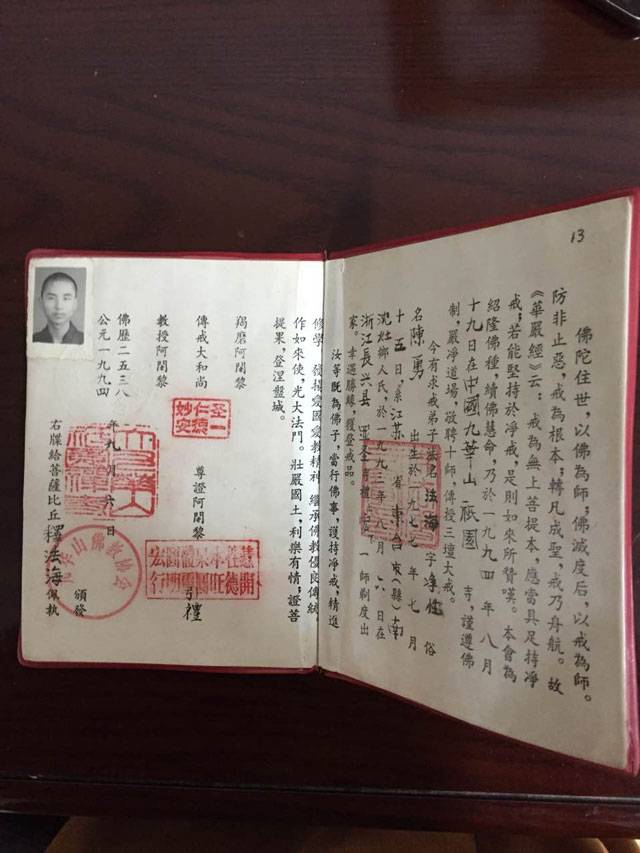 13
佛陀住世，以佛為師；佛滅度后，以戒為師。
防非止惡，戒為根本；轉凡成聖，戒乃舟航。故
《華嚴經》云：戒為無上菩提本，應當具足持凈
戒；若能堅持於凈戒，是則如來所贊嘆。本會為
紹隆佛種，續佛慧命，乃於一九九四年八月
十九日在中國九華山祇園寺，謹遵佛
制，嚴凈道場，敬聘十師，傳授三壇大戒。
今有求戒弟子法名法海字淨性俗
名陳勇出生於一九七七年七月
十五日，系江苏省東台市(縣)南
沈灶鄉人氏，於一九九三年八月六日在
浙江長兴县禮師剃度出
家。幸遇勝緣，獲登戒品。
汝等既為佛子，當行佛事，護持凈戒，精進
修學，發揚愛國愛教精神，繼承佛教優良傳統，
作如來使，光大法門。莊嚴國土，利樂有情；證菩
提果，登涅盤城。
羯磨阿闍黎
傳戒大和尚
教授阿闍黎
尊證阿闍黎
聖一
仁德
妙安
引禮
佛歷二五三八
公元一九九四年九月六日
頒發
右牒給菩薩比丘釋法海佩執